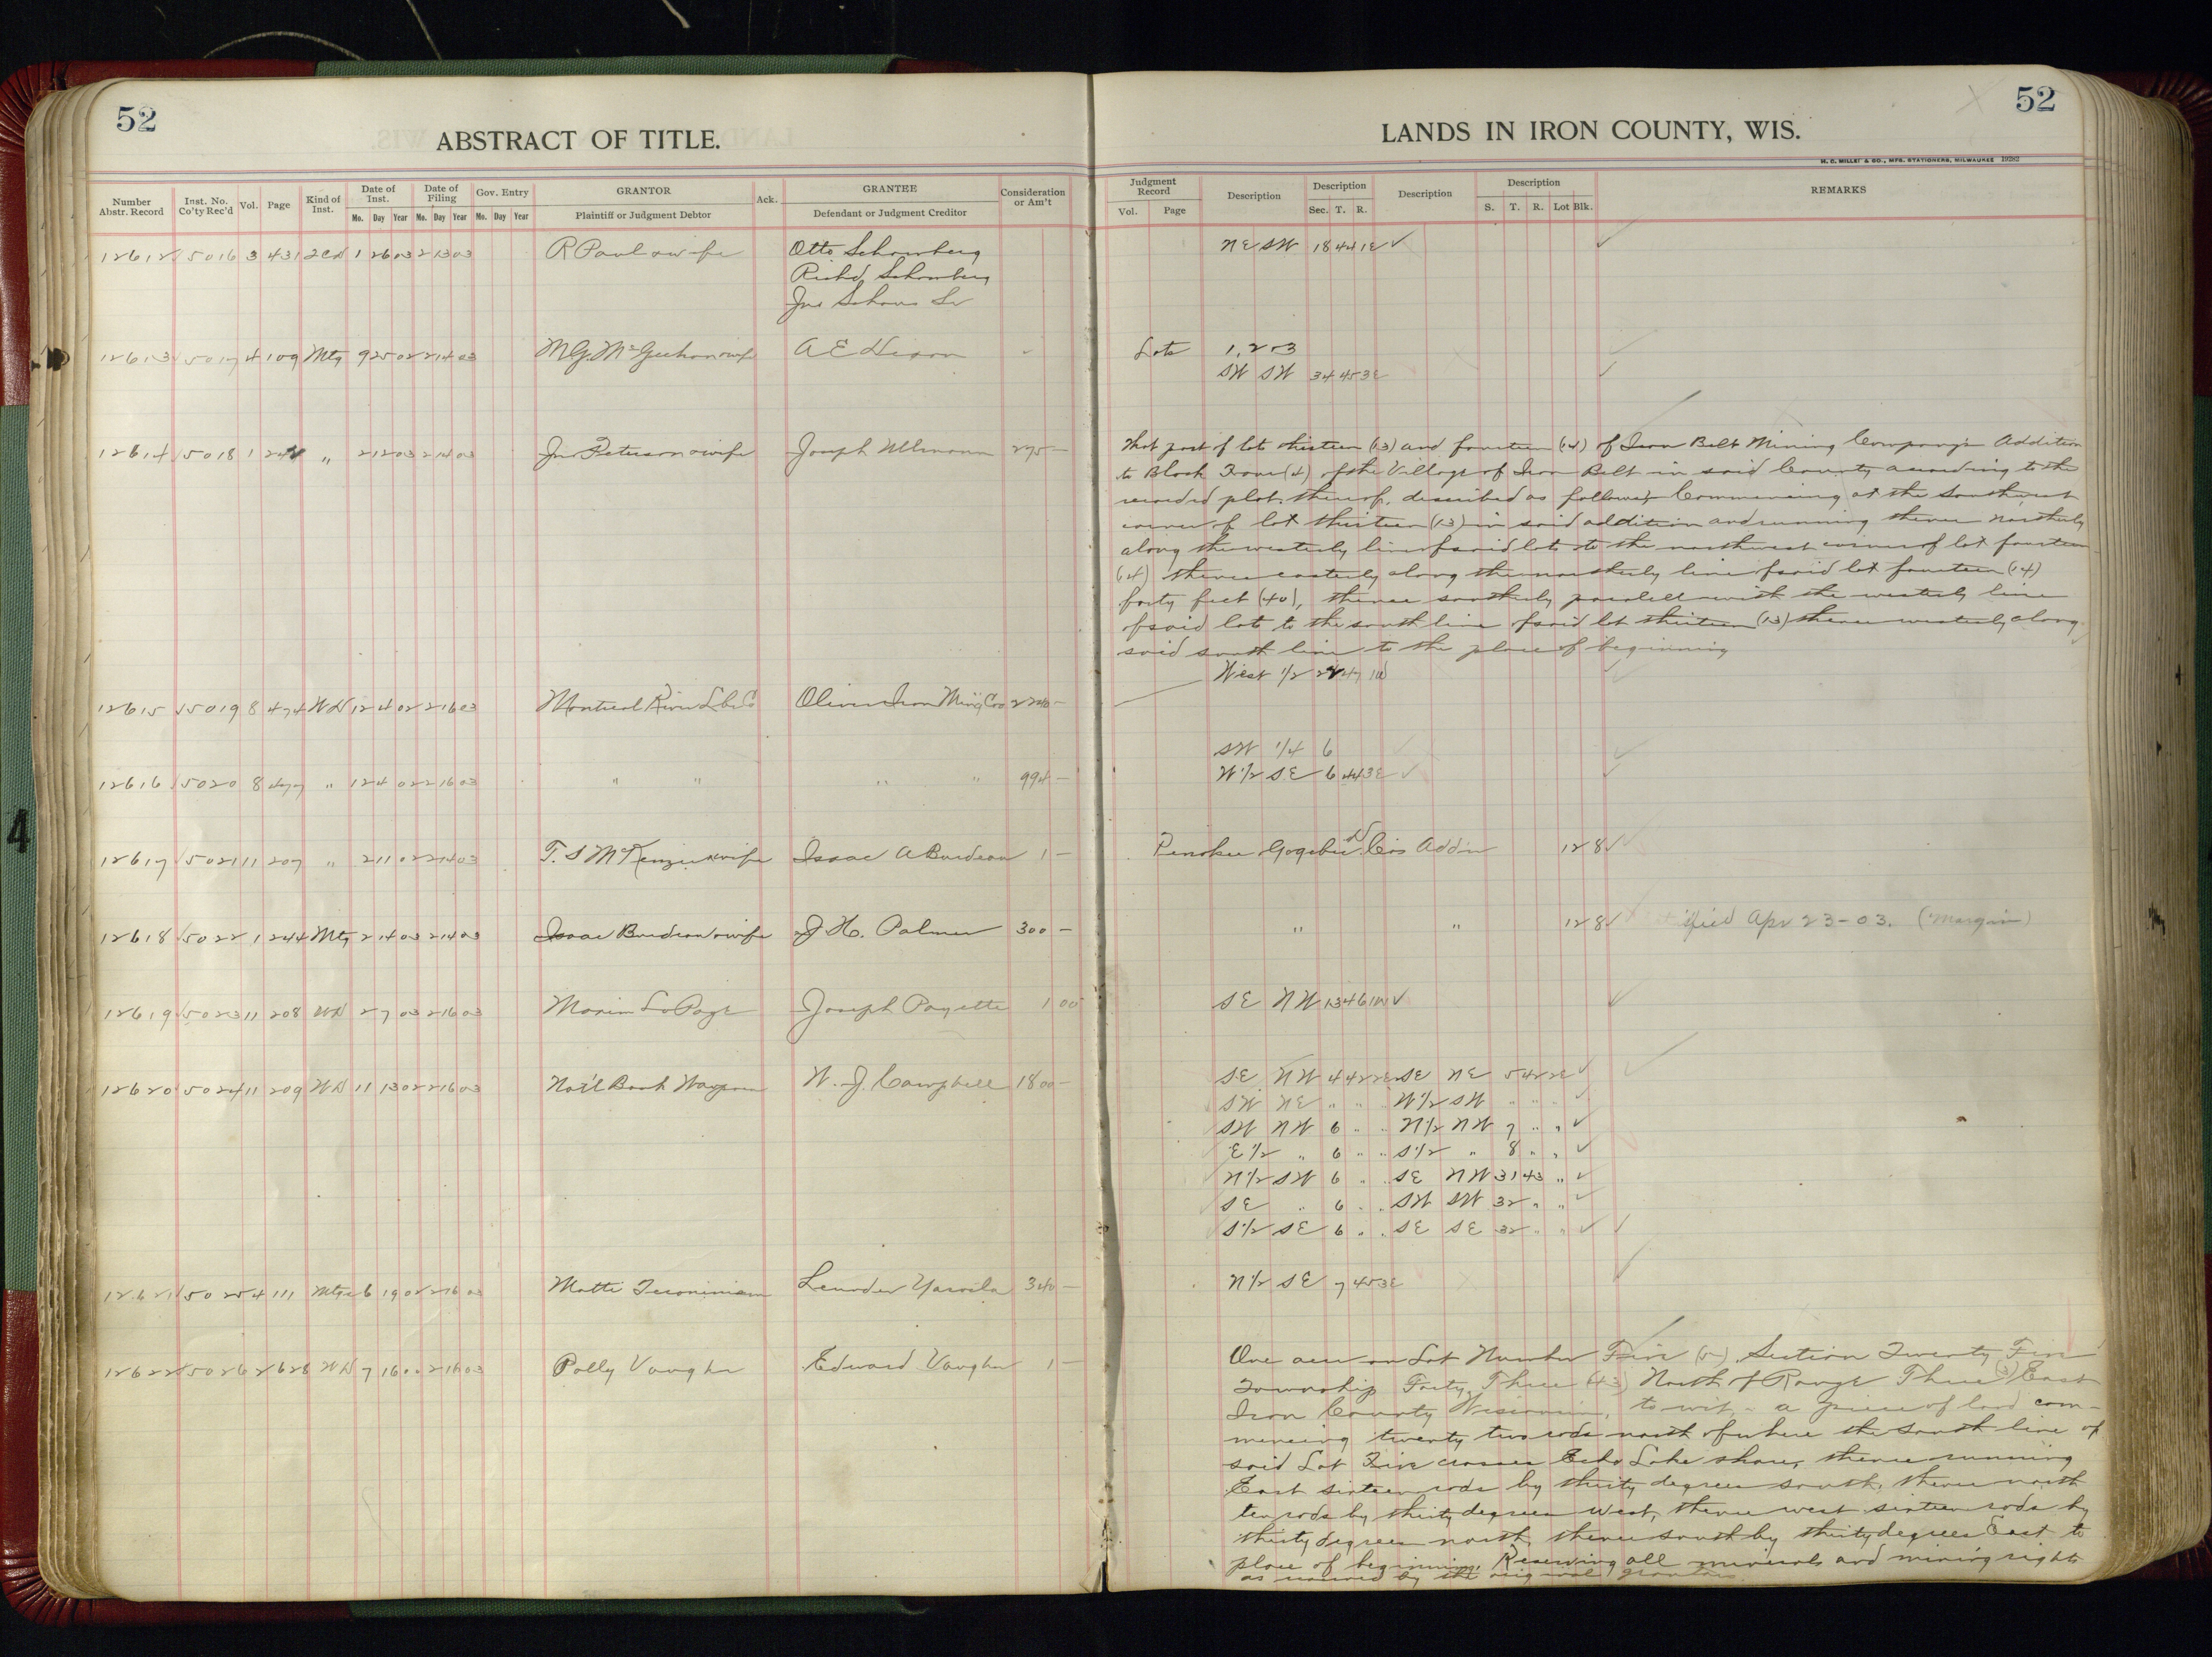 52
ABSTRACT OF TITLE.
Number Abstr. Record
Inst. No. Co'ty Rec'd
Vol.
Page
Kind of Inst.
Date of Inst.
Date of Filing
Gov. Entry
Mo. Day Year Mo. Day Year Mo. Day Year
GRANTOR
Plaintiff or Judgment Debtor
Ack.
GRANTEE
Defendant or Judgment Creditor
Consideration or Am't
12612 15016 3 431 2CD 1 26 03 2 13 03 R Paul & wife Otto Schomberg
Richd Schomberg
Jno Schoms Sr
12613 15017 4 109 Mtg 9 25 02 2 14 03 A E Dixon
12614 15018 1 242 " 2 12 03 2 14 03 Jno Peterson & wife Joseph Ullmann 275 —
12615 15019 8 474 WD 12 4 02 2 16 03 Montreal River Lbr Co Oliver Iron Min'g Co 2240 —
12616 15020 8 477 " 12 4 02 2 16 03 " " " " 994 —
12617 15021 11 207 " 2 11 02 2 14 03 T. S McKenzie & wife Isaac A Burdeau 1 —
12618 15022 1 244 Mtg 2 14 03 2 14 03 Isaac Burdeau & wife J. H. Palmer 300 —
12619 15023 11 208 WD 2 7 03 2 16 03 Maxim LaPage Joseph Payette 1 00
12620 15024 11 209 WD 11 13 02 2 16 03 Nat'l Bank Waupun W. J. Campbell 1800 —
12621 15025 4 111 Mtg 6 19 02 2 16 03 Matti 340 —
12622 15026 2 628 WD 7 16 2 16 03 Polly Vaughn Edward Vaughn 1 —
52
LANDS IN IRON COUNTY, WIS.
H. C. MILLER & CO., MFG. STATIONERS, MILWAUKEE 19282
Judgment Record
Vol. Page
Description
Description
Sec. T. R.
Description
Description
S. T. R. Lot Blk.
REMARKS
NE SW 18 44 1E ✓ ✓
Lots 1, 2 & 3 ✓
SW SW 34 45 3E ✓
That part of lots thirteen (13) and fourteen (14) of Iron Belt Mining Company's Addition
to Block Four (4) of the Village of Iron Belt in said County according to the
recorded plat thereof, described as follows, Commencing at the Southwest
corner of lot thirteen (13) in said addition and running thence northerly
along the westerly line of said lots to the northwest corner of lot fourteen
(14) thence easterly along the northerly line of said lot fourteen (14)
forty feet (40), thence southerly paralell with the westerly line
of said lots to the south line of said lot thirteen (13) thence westerly along
said south line to the place of beginning
West 1/2 22 47 1W ✓
SW 1/4 6 ✓ ✓
W 1/2 SE 6 44 3E ✓ ✓
Penokee Gogebic D Co's Add'n 12 8 ✓
" " 12 8 ✓ Apr 23-03. (Margin)
SE NW 13 46 1W ✓ ✓
SE NW 4 42 2E SE NE 5 42 2E ✓ ✓
SW NE " " " W 1/2 SW " " " ✓
SW NW 6 " " N 1/2 NW 7 " " ✓
E 1/2 " 6 " " S 1/2 " 8 " " ✓
N 1/2 SW 6 " " SE NW 31 43 " ✓
SE " 6 " " SW SW 32 " " ✓
S 1/2 SE 6 " " SE SE 32 " " ✓ ✓
N 1/2 SE 7 45 3E ✓
One acre on Lot Number Five (5), Section Twenty Five
Township Forty Three (43) North of Range Three (3) East
Iron County Wisconsin, to wit, - a piece of land com-
mencing twenty two rods north of where the south line of
said Lot Five crosses Echo Lake shore, thence running
East sixteen rods by thirty degrees south, thence north
ten rods by thirty degrees West, thence west sixteen rods by
thirty degrees north, thence south by thirty degrees East to
place of beginning. Reserving all minerals and mining rights
as reserved by the original grantors.
4